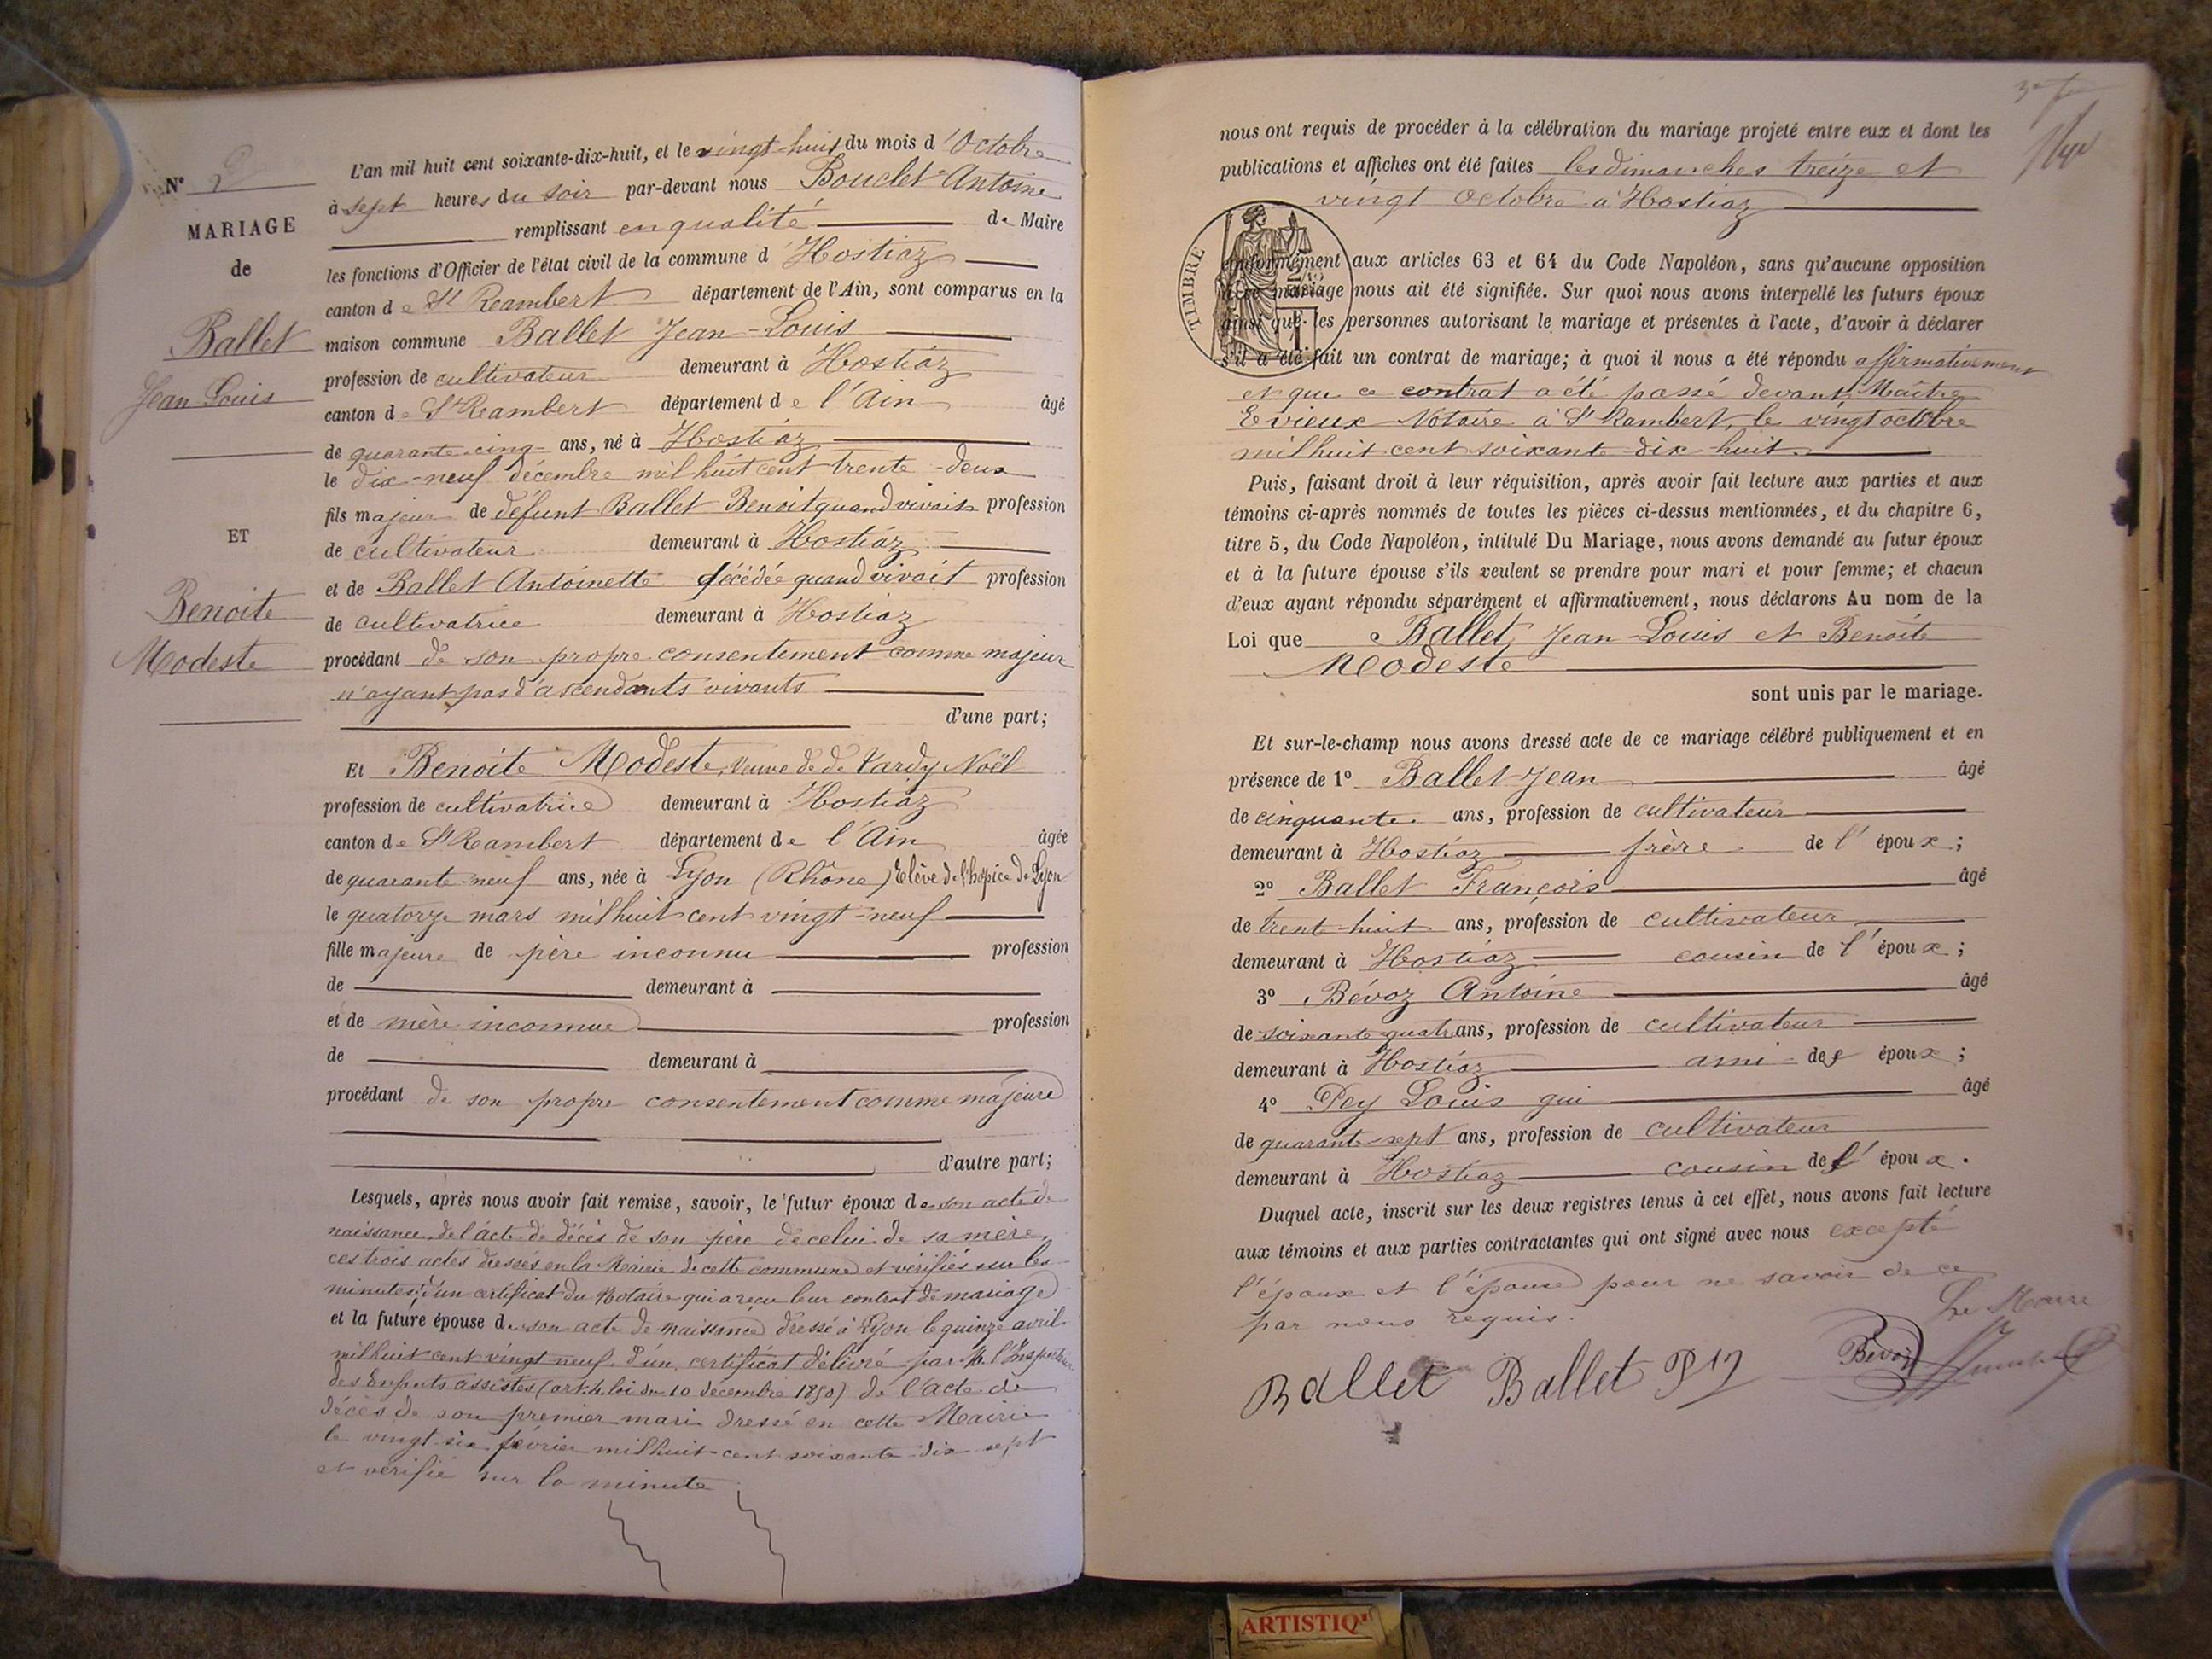 N° 2
MARIAGE
de
Ballet
Jean Louis
ET
Benoite
Modeste
L'an mil huit cent soixante-dix-huit, et le vingt-huit du mois d'Octobre
à sept heures du soir par-devant nous Bouclet Antoine
remplissant en qualité de Maire
les fonctions d'Officier de l'état civil de la commune d'Hostiaz
canton de St Rambert département de l'Ain, sont comparus en la
maison commune Ballet Jean-Louis
profession de cultivateur demeurant à Hostiaz
canton de St Rambert département de l'Ain âgé
de quarante-cinq ans, né à Hostiaz
le dix-neuf décembre mil huit cent trente-deux
fils majeur de défunt Ballet Benoit quand vivait profession
de cultivateur demeurant à Hostiaz
et de Ballet Antoinette décédée quand vivait profession
de cultivatrice demeurant à Hostiaz
procédant de son propre consentement comme majeur
n'ayant pas d'ascendants vivants
d'une part;
Et Benoite Modeste, veuve de d. Vardy Noël
profession de cultivatrice demeurant à Hostiaz
canton de St Rambert département de l'Ain âgée
de quarante-neuf ans, née à Lyon (Rhône) Elève de l'hospice de Lyon
le quatorze mars mil huit cent vingt-neuf
fille majeure de père inconnu profession
de demeurant à
et de mère inconnue profession
de demeurant à
procédant de son propre consentement comme majeure
d'autre part;
Lesquels, après nous avoir fait remise, savoir, le futur époux de son acte de
naissance, de l'acte de décès de son père de celui de sa mère,
ces trois actes dressés en la Mairie de cette commune et vérifiés sur les
minutes, d'un certificat du Notaire qui a reçu leur contrat de mariage
et la future épouse de son acte de naissance dressé à Lyon le quinze avril
mil huit cent vingt neuf, d'un certificat délivré par M. l'Inspecteur
des Enfants assistés (art. 4 loi du 10 décembre 1850) de l'acte de
décès de son premier mari dressé en cette Mairie
le vingt-six février mil huit-cent soixante-dix-sept
et vérifié sur la minute
nous ont requis de procéder à la célébration du mariage projeté entre eux et dont les
publications et affiches ont été faites les dimanches treize et
vingt octobre à Hostiaz
TIMBRE
conformément aux articles 63 et 64 du Code Napoléon, sans qu'aucune opposition
à ce mariage nous ait été signifiée. Sur quoi nous avons interpellé les futurs époux
ainsi que les personnes autorisant le mariage et présentes à l'acte, d'avoir à déclarer
s'il a été fait un contrat de mariage; à quoi il nous a été répondu affirmativement
et que ce contrat a été passé devant Maître
Evieux Notaire à St Rambert, le vingt octobre
mil huit cent soixante-dix-huit.
Puis, faisant droit à leur réquisition, après avoir fait lecture aux parties et aux
témoins ci-après nommés de toutes les pièces ci-dessus mentionnées, et du chapitre 6,
titre 5, du Code Napoléon, intitulé Du Mariage, nous avons demandé au futur époux
et à la future épouse s'ils veulent se prendre pour mari et pour femme; et chacun
d'eux ayant répondu séparément et affirmativement, nous déclarons Au nom de la
Loi que Ballet, Jean-Louis et Benoite
Modeste
sont unis par le mariage.
Et sur-le-champ nous avons dressé acte de ce mariage célébré publiquement et en
présence de 1° Ballet Jean âgé
de cinquante ans, profession de cultivateur
demeurant à Hostiaz frère de l'époux;
2° Ballet François âgé
de trente-huit ans, profession de cultivateur
demeurant à Hostiaz cousin de l'époux;
3° Bévoz Antoine âgé
de soixante quatre ans, profession de cultivateur
demeurant à Hostiaz ami des époux;
4° Pey Louis qui âgé
de quarante-sept ans, profession de cultivateur
demeurant à Hostiaz cousin de l'époux.
Duquel acte, inscrit sur les deux registres tenus à cet effet, nous avons fait lecture
aux témoins et aux parties contractantes qui ont signé avec nous excepté
l'époux et l'épouse pour ne savoir de ce
par nous requis.
Le Maire
Ballet Ballet Bévoz
ARTISTIQ